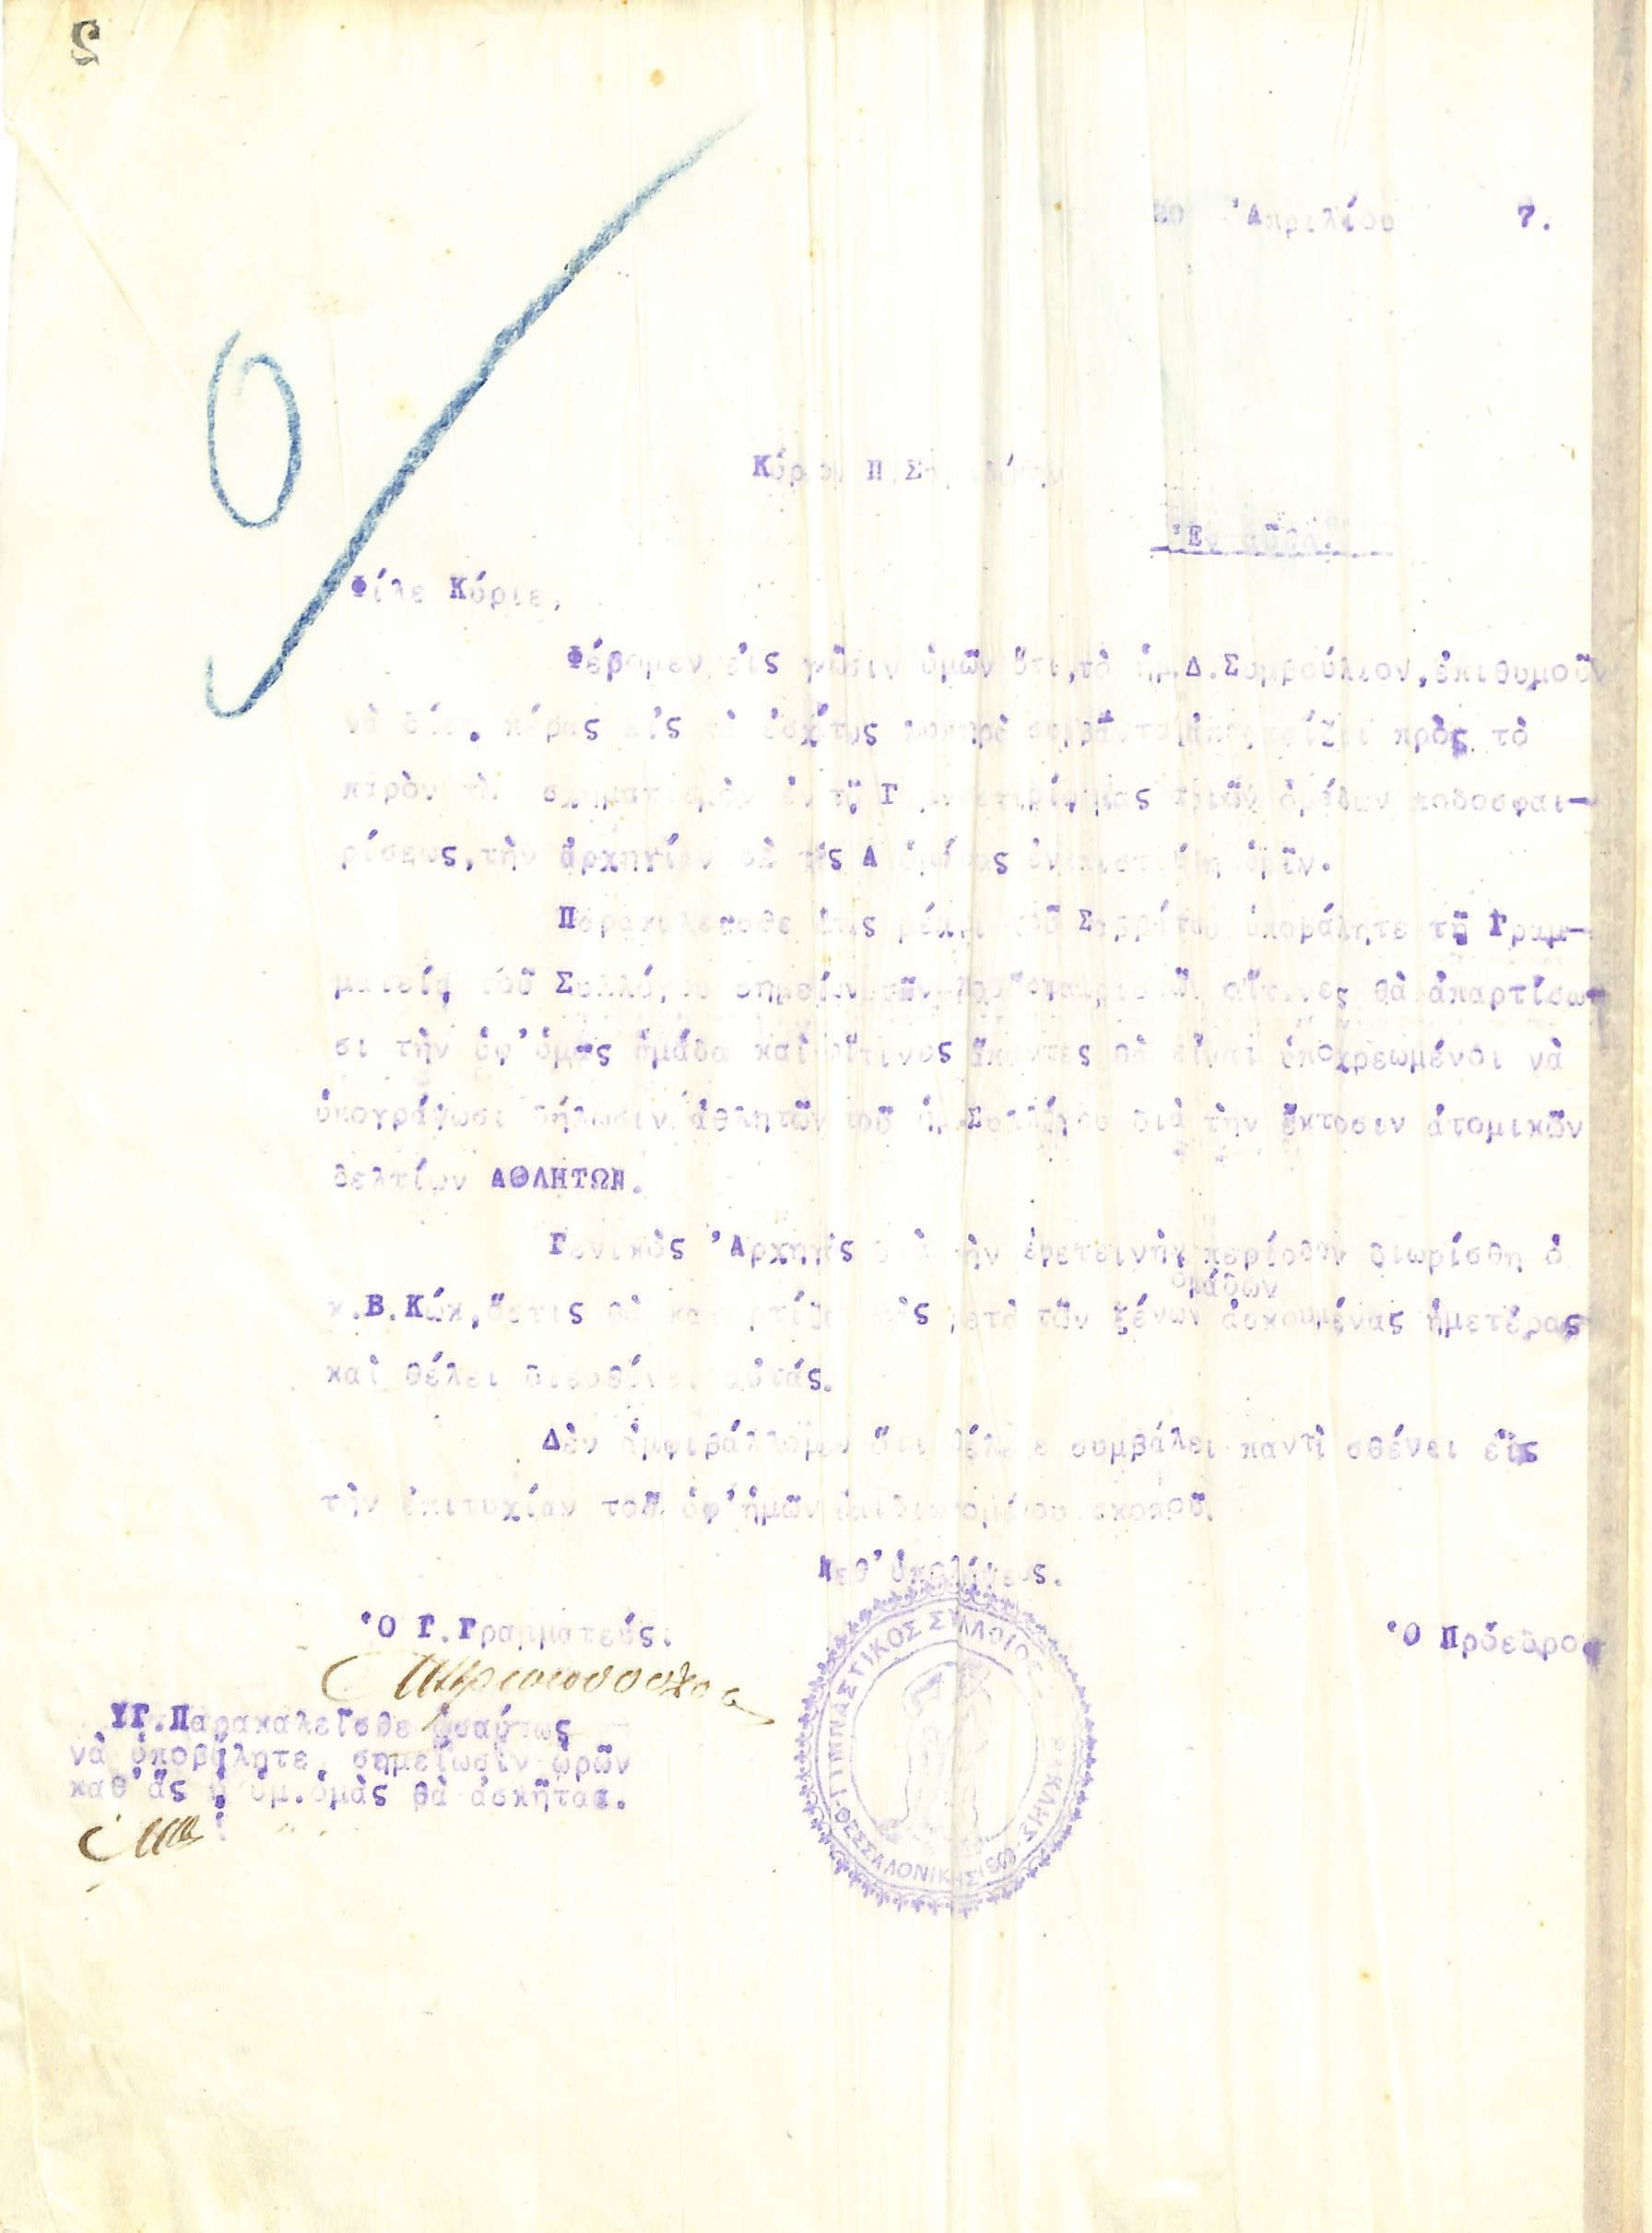 2
20 Ἀπριλίου 7.
Κύριον Π.
Ἐνταῦθα.
Φίλε Κύριε,
Φέρομεν εἰς γνῶσιν ὑμῶν ὅτι, τὸ ἡμ.Δ.Συμβούλιον, ἐπιθυμοῦν
νὰ δώσῃ πέρας εἰς τὰ ἐσχάτως λυπηρὰ συμβάντα, ἀποφασίζει πρὸς τὸ
παρὸν τὸν σχηματισμὸν ἐν τῇ τριῶν ὁμάδων ποδοσφαι-
ρίσεως, τὴν ἀρχηγίαν δὲ τῆς Α ὁμάδος ὑμῖν.
Παρακαλεῖσθε ὅπως μέχρι τοῦ Σαββάτου ὑποβάλητε τῇ Γραμ-
ματείᾳ τοῦ Συλλόγου σημείωσιν τῶν ποδοσφαιριστῶν οἵτινες θὰ ἀπαρτίσω-
σι τὴν ὑφ' ὑμᾶς ὁμάδα καὶ οἵτινες ἅπαντες θὰ εἶναι ὑποχρεωμένοι νὰ
ὑπογράψωσι δήλωσιν ἀθλητῶν τοῦ ἡμ.Συλλόγου διὰ τὴν ἔκτοσιν ἀτομικῶν
δελτίων ΑΘΛΗΤΩΝ.
Γενικὸς Ἀρχηγὸς διὰ τὴν ἐφετεινὴν περίοδον διωρίσθη ὁ
ομάδων
κ.Β.Κώκ, ὅστις θὰ καταρτίζῃ τὰς μετὰ τῶν ξένων ἀσκουμένας ἡμετέρας
καὶ θέλει διευθύνει αὐτάς.
Δὲν ἀμφιβάλλομεν ὅτι θέλετε συμβάλει παντὶ σθένει εἰς
τὴν ἐπιτυχίαν τοῦ ὑφ' ἡμῶν ἐπιδιωκομένου σκοποῦ.
Μεθ' ὑπολήψεως.
Ὁ Γ.Γραμματεύς. Ὁ Πρόεδρος
ΥΓ.Παρακαλεῖσθε ὡσαύτως
νὰ ὑποβάλητε σημείωσιν ὡρῶν
καθ' ἃς ἡ ὑμ.ὁμὰς θὰ ἀσκῆται.
ΓΥΜΝΑΣΤΙΚΟΣ ΣΥΛΛΟΓΟΣ ΗΡΑΚΛΗΣ
ΘΕΣΣΑΛΟΝΙΚΗΣ 1908